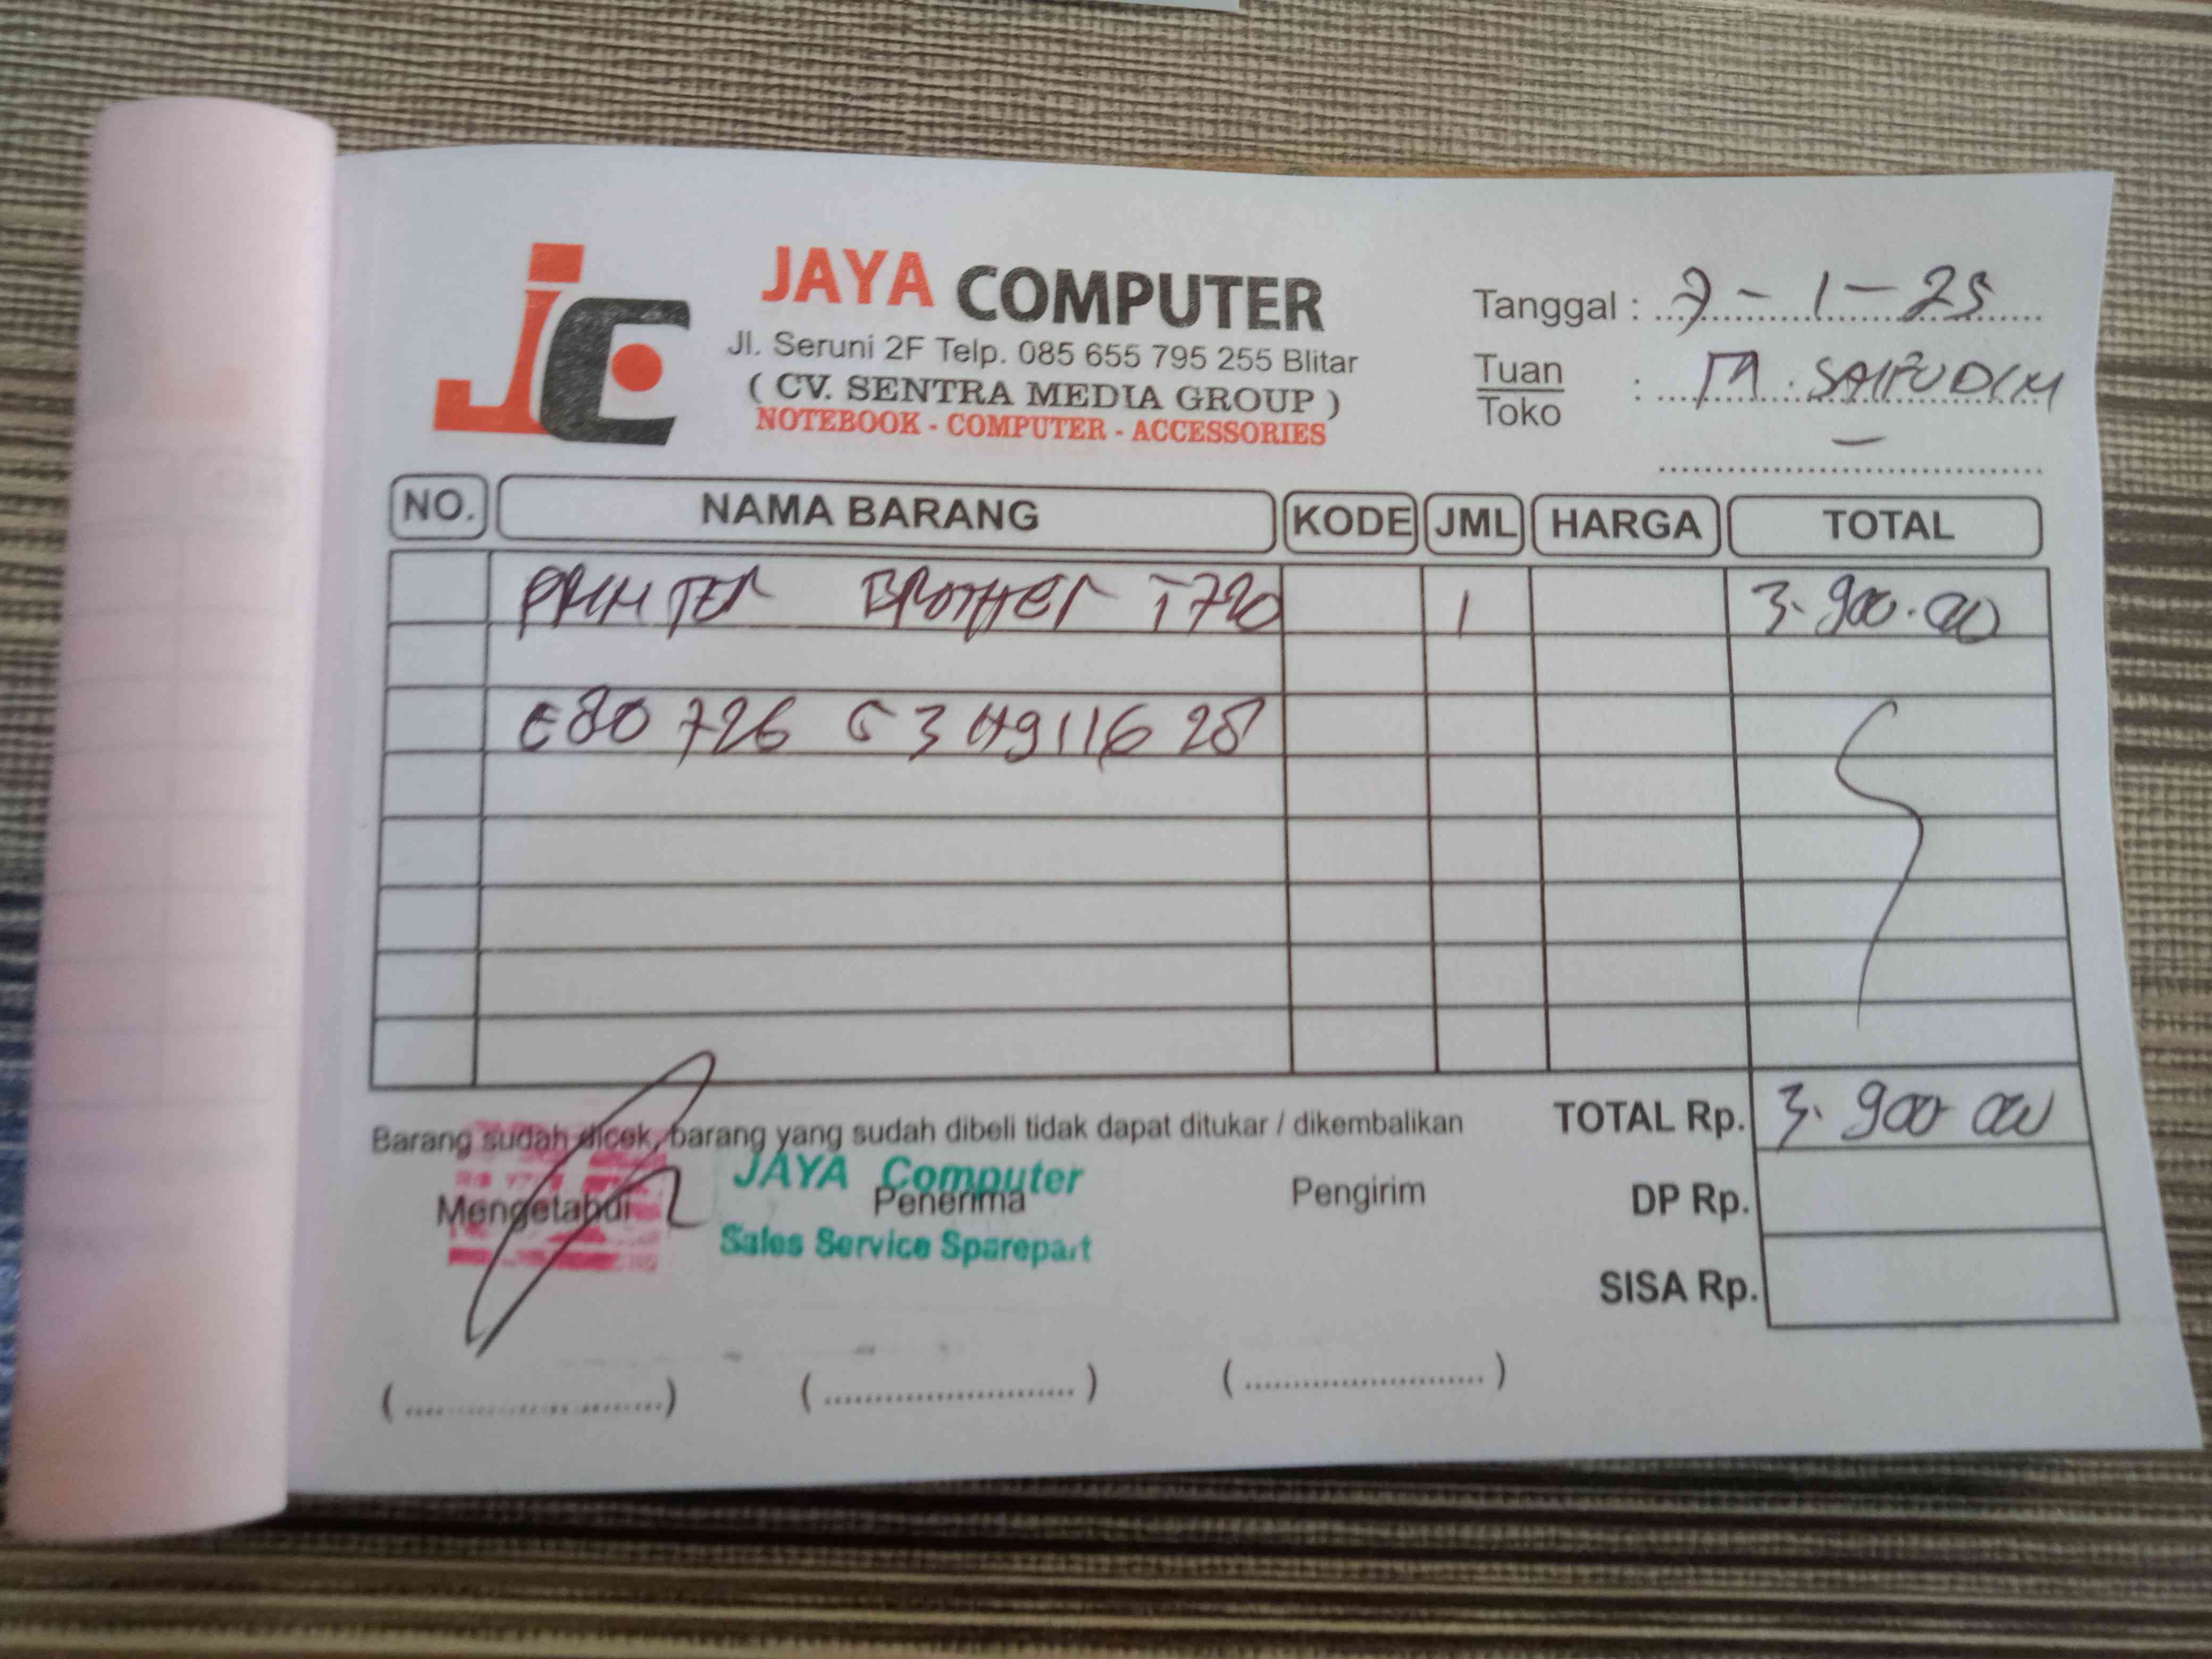 JAYA COMPUTER
Jl. Seruni 2F Telp. 085 655 795 255 Blitar
( CV. SENTRA MEDIA GROUP )
NOTEBOOK - COMPUTER - ACCESSORIES
Tanggal : 7-1-25
Tuan
Toko : M. SAIFUDIN
NO. NAMA BARANG KODE JML HARGA TOTAL
PRINTER BROTHER T720 1 3.900.000
E80 726 G3H911628
Barang sudah dicek, barang yang sudah dibeli tidak dapat ditukar / dikembalikan
TOTAL Rp. 3.900.000
Mengetahui Penerima Pengirim
JAYA Computer
Sales Service Sparepart
DP Rp.
SISA Rp.